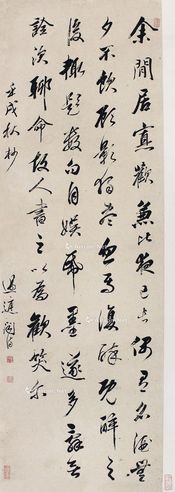 余閒居寡歡兼比夜已長偶有名酒無
夕不飲顧影獨盡忽焉復醉既醉之
後輒題數句自娛紙墨遂多辭無
詮次聊命故人書之以為歡笑尔
壬戌秋杪